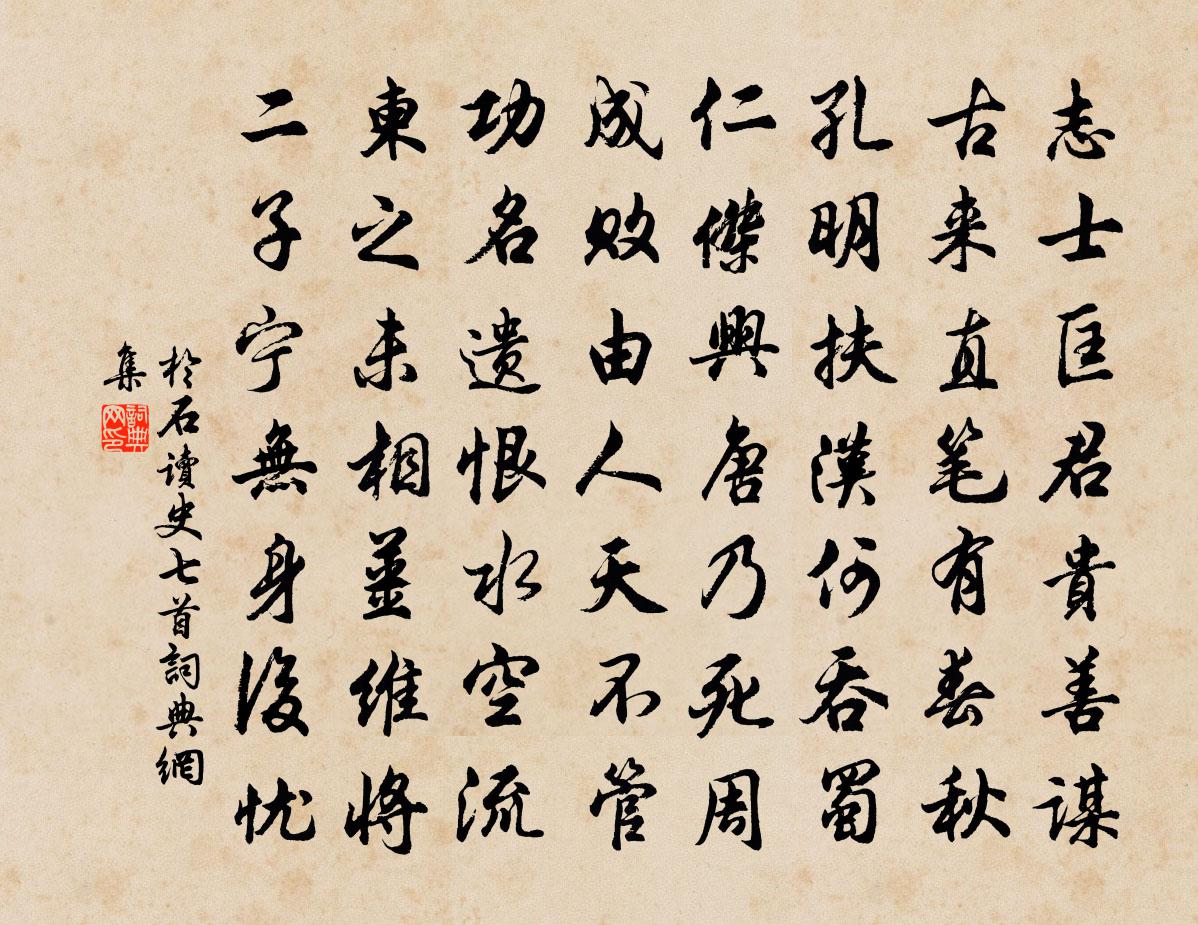 志士匡君貴善謀
古来直笔有春秋
孔明扶漢何吞蜀
仁傑興唐乃死周
成敗由人天不管
功名遗恨水空流
東之未相薑維將
二子宁無身後忧
於石讀史七首詞典網
集
詞典
网印